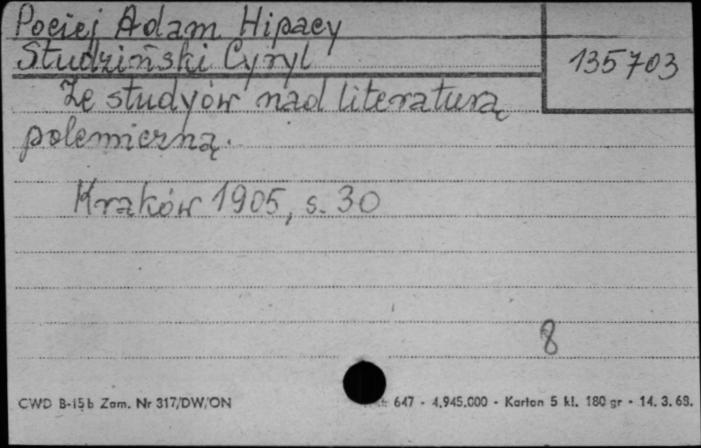 Pociej Adam Hipacy
Studziński Cyryl
135703
Ze studyów nad literaturą
polemiczną.
Kraków 1905, s. 30
8
CWD B-15b Zam. Nr 317/DW/ON
647 - 4.945.000 - Karton 5 kl. 180 gr - 14. 3. 68.